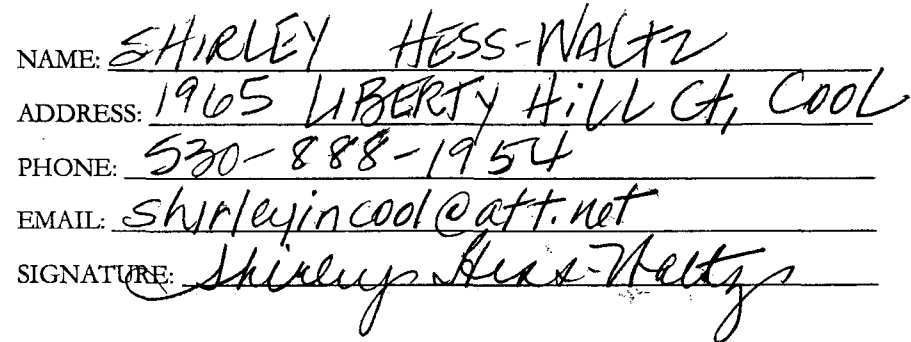 NAME: SHIRLEY HESS-WALTZ
ADDRESS: 1965 LIBERTY HiLL Ct, COOL
PHONE: 530-888-1954
EMAIL: shirleyincool@att.net
SIGNATURE: Shirley Hess-Waltz